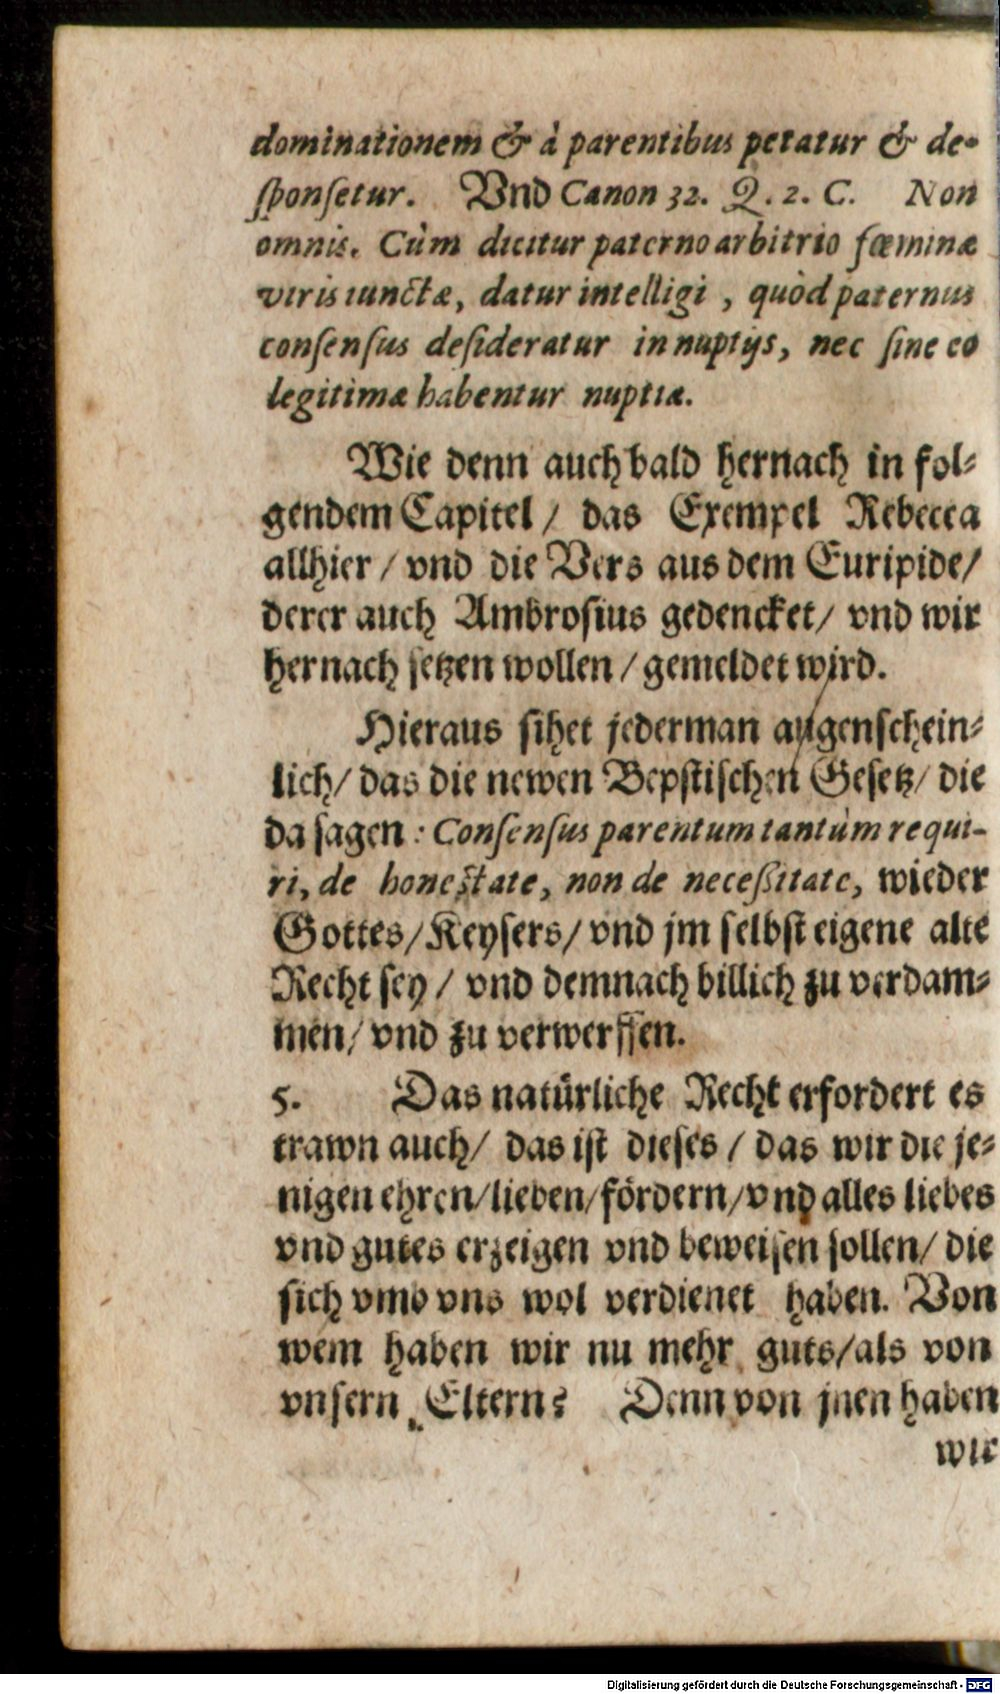 dominationem & à parentibus petatur & de-
ſponſetur. Vnd Canon 32. Q. 2. C. Non
omnis. Cùm dicitur paterno arbitrio fœminæ
viris iunctæ, datur intelligi, quòd paternus
conſenſus deſideratur in nuptijs, nec ſine eo
legitimæ habentur nuptiæ.
Wie denn auch bald hernach in fol-
gendem Capitel / das Exempel Rebecca
allhier / vnd die Vers aus dem Euripide/
derer auch Ambroſius gedencket/ vnd wir
hernach ſetzen wollen / gemeldet wird.
Hieraus ſihet jederman augenſchein-
lich/ das die newen Bepſtiſchen Geſetz/ die
da ſagen : Conſenſus parentum tantùm requi-
ri, de honeſtate, non de neceßitate, wieder
Gottes/ Keyſers/ vnd jm ſelbſt eigene alte
Recht ſey / vnd demnach billich zu verdam-
men/ vnd zu verwerffen.
5. Das natürliche Recht erfordert es
trawn auch/ das iſt dieſes / das wir die je-
nigen ehren/lieben/fördern/vnd alles liebes
vnd gutes erzeigen vnd beweiſen ſollen/ die
ſich vmb vns wol verdienet haben. Von
wem haben wir nu mehr guts/als von
vnſern Eltern? Denn von jnen haben
wir
Digitalisierung gefördert durch die Deutsche Forschungsgemeinschaft - DFG